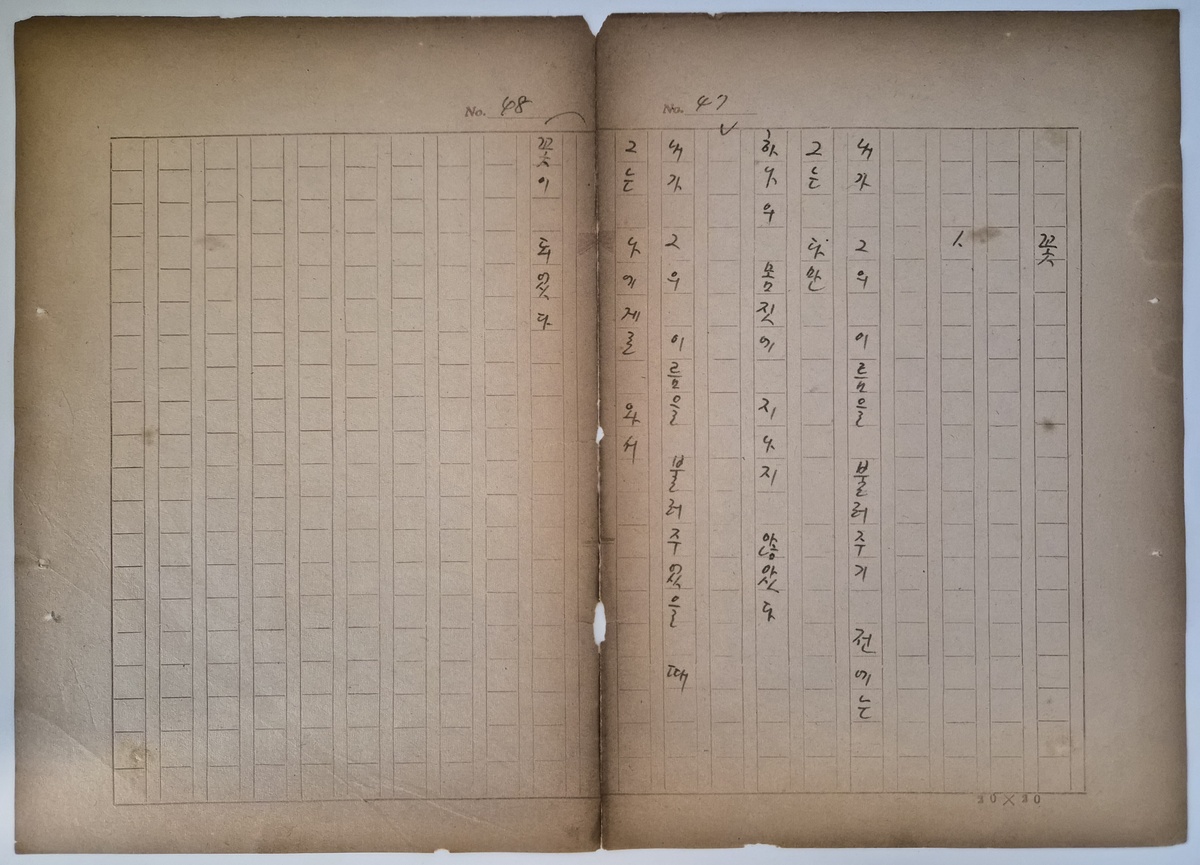 No. 47
꽃
내가 그의 이름을 불러주기 전에는
그는 다만
하나의 몸짓에 지나지 않았다
내가 그의 이름을 불러주었을 때
그는 나에게로 와서
20×20
No. 48
꽃이 되었다